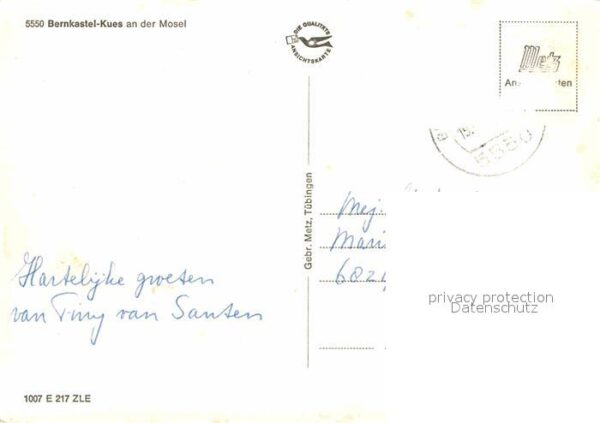 5550 Bernkastel-Kues an der Mosel
DIE QUALITÄTS
ANSICHTSKARTE
Metz
An ten
5550
Gebr. Metz, Tübingen
Mej.
Mari
602
Hartelijke groeten
van Tiny van Santen
privacy protection
Datenschutz
1007 E 217 ZLE